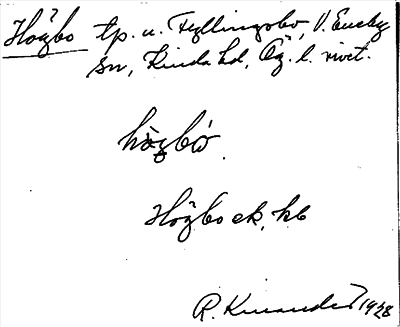 Högbo tp. u. Fyllingsbo, V. Eneby
sn, Kinda hd, Ög. l. rivet.
högbò
Högbo ek, kb
R. Kinander 1928